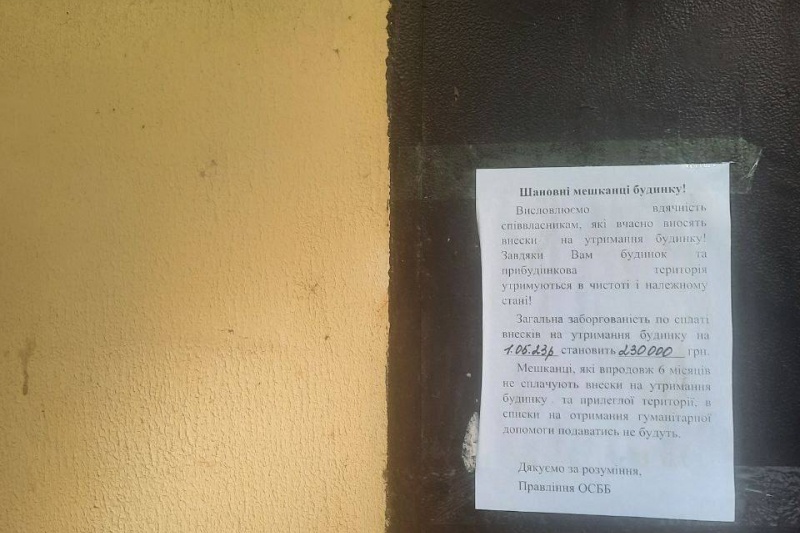 Шановні мешканці будинку!
Висловлюємо вдячність
співвласникам, які вчасно вносять
внески на утримання будинку!
Завдяки Вам будинок та
прибудинкова територія
утримуються в чистоті і належному
стані!
Загальна заборгованість по сплаті
внесків на утримання будинку на
1.05.23р становить 230000 грн.
Мешканці, які впродовж 6 місяців
не сплачують внески на утримання
будинку та прилеглої території, в
списки на отримання гуманітарної
допомоги подаватись не будуть.
Дякуємо за розуміння,
Правління ОСББ